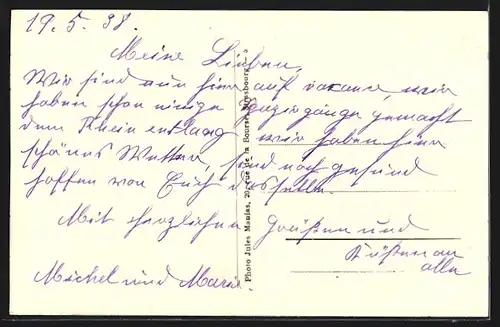 19. 5. 38.
Meine Lieben,
Wir sind nun hier auf vacance, wir
haben schon einige Spaziergänge gemacht
dem Rhein entlang wir haben hier
schönes Wetter, sind noch gesund
hoffen von Euch dasselbe.
Mit herzlichen Grüßen und
Küßen an
alle
Michel und Marie
Photo Jules Manias, 20, rue de la Bourse, Strasbourg